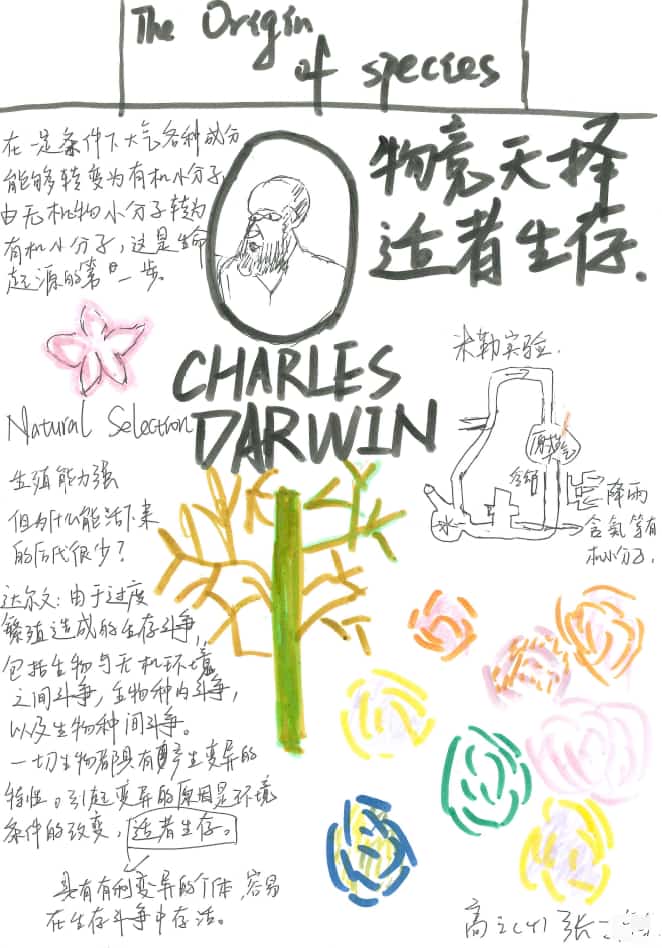 The Origin
of species
在一定条件下大气各种成分
能够转变为有机小分子,
由无机物小分子转为
有机小分子,这是生命
起源的第一步。
物竞天择
适者生存.
CHARLES
DARWIN
米勒实验.
原始大气
冷却
水
降雨
含氨等有
机小分子.
Natural Selection
生殖能力强
但为什么能活下来
的后代很少?
达尔文:由于过度
繁殖造成的生存斗争,
包括生物与无机环境
之间斗争,生物种内斗争,
以及生物种间斗争。
一切生物都具有产生变异的
特性。引起变异的原因是环境
条件的改变,适者生存。
具有有利变异的个体,容易
在生存斗争中存活。
高二(1) 张